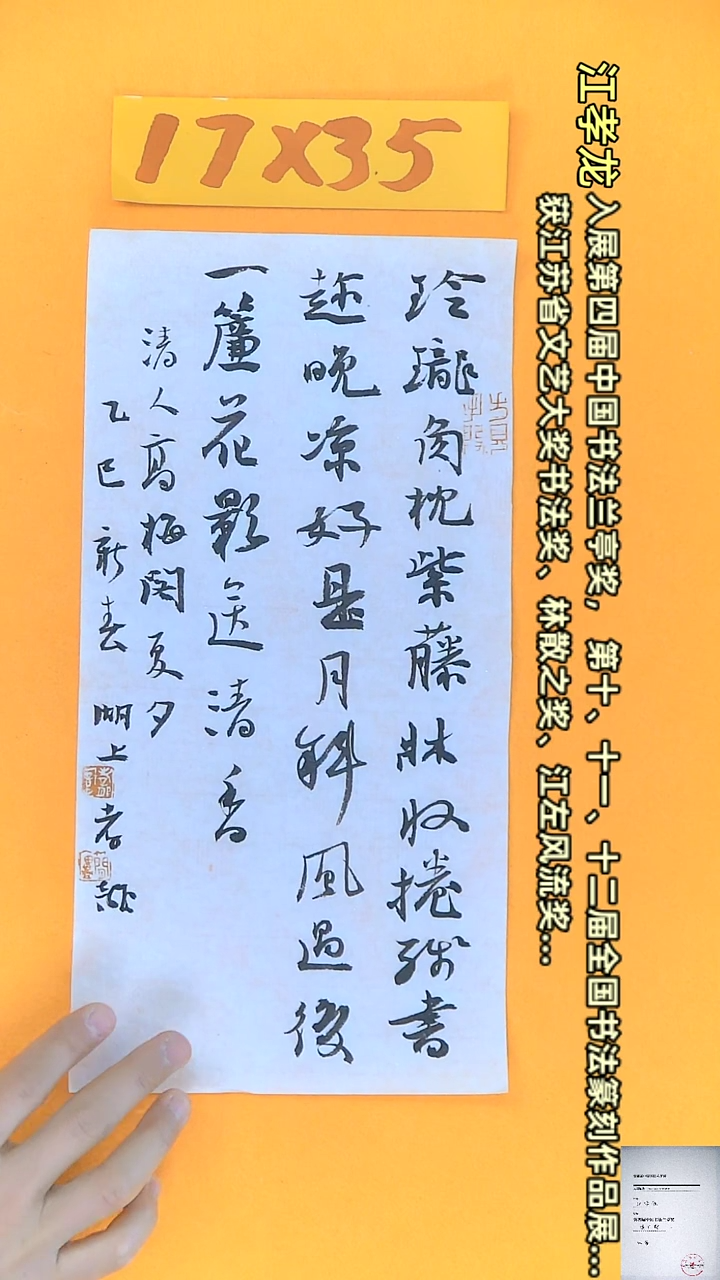 17X35
江孝龙
入展第四届中国书法兰亭奖，第十、十一、十二届全国书法篆刻作品展...
获江苏省文艺大奖书法奖、林散之奖、江左风流奖...
玲瓏肉枕紫藤牀收捲殘書
趁晚涼好是月斜風過後
一簾花影送清香
清人高梅閣夏夕
乙巳新春湖上孝龍